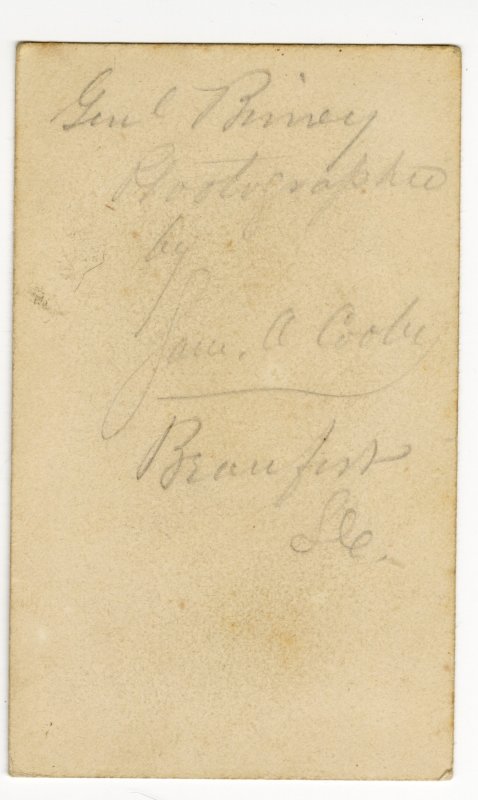 Genl Birney
Photographed
by
Sam. A Cooley
Beaufort
SC.